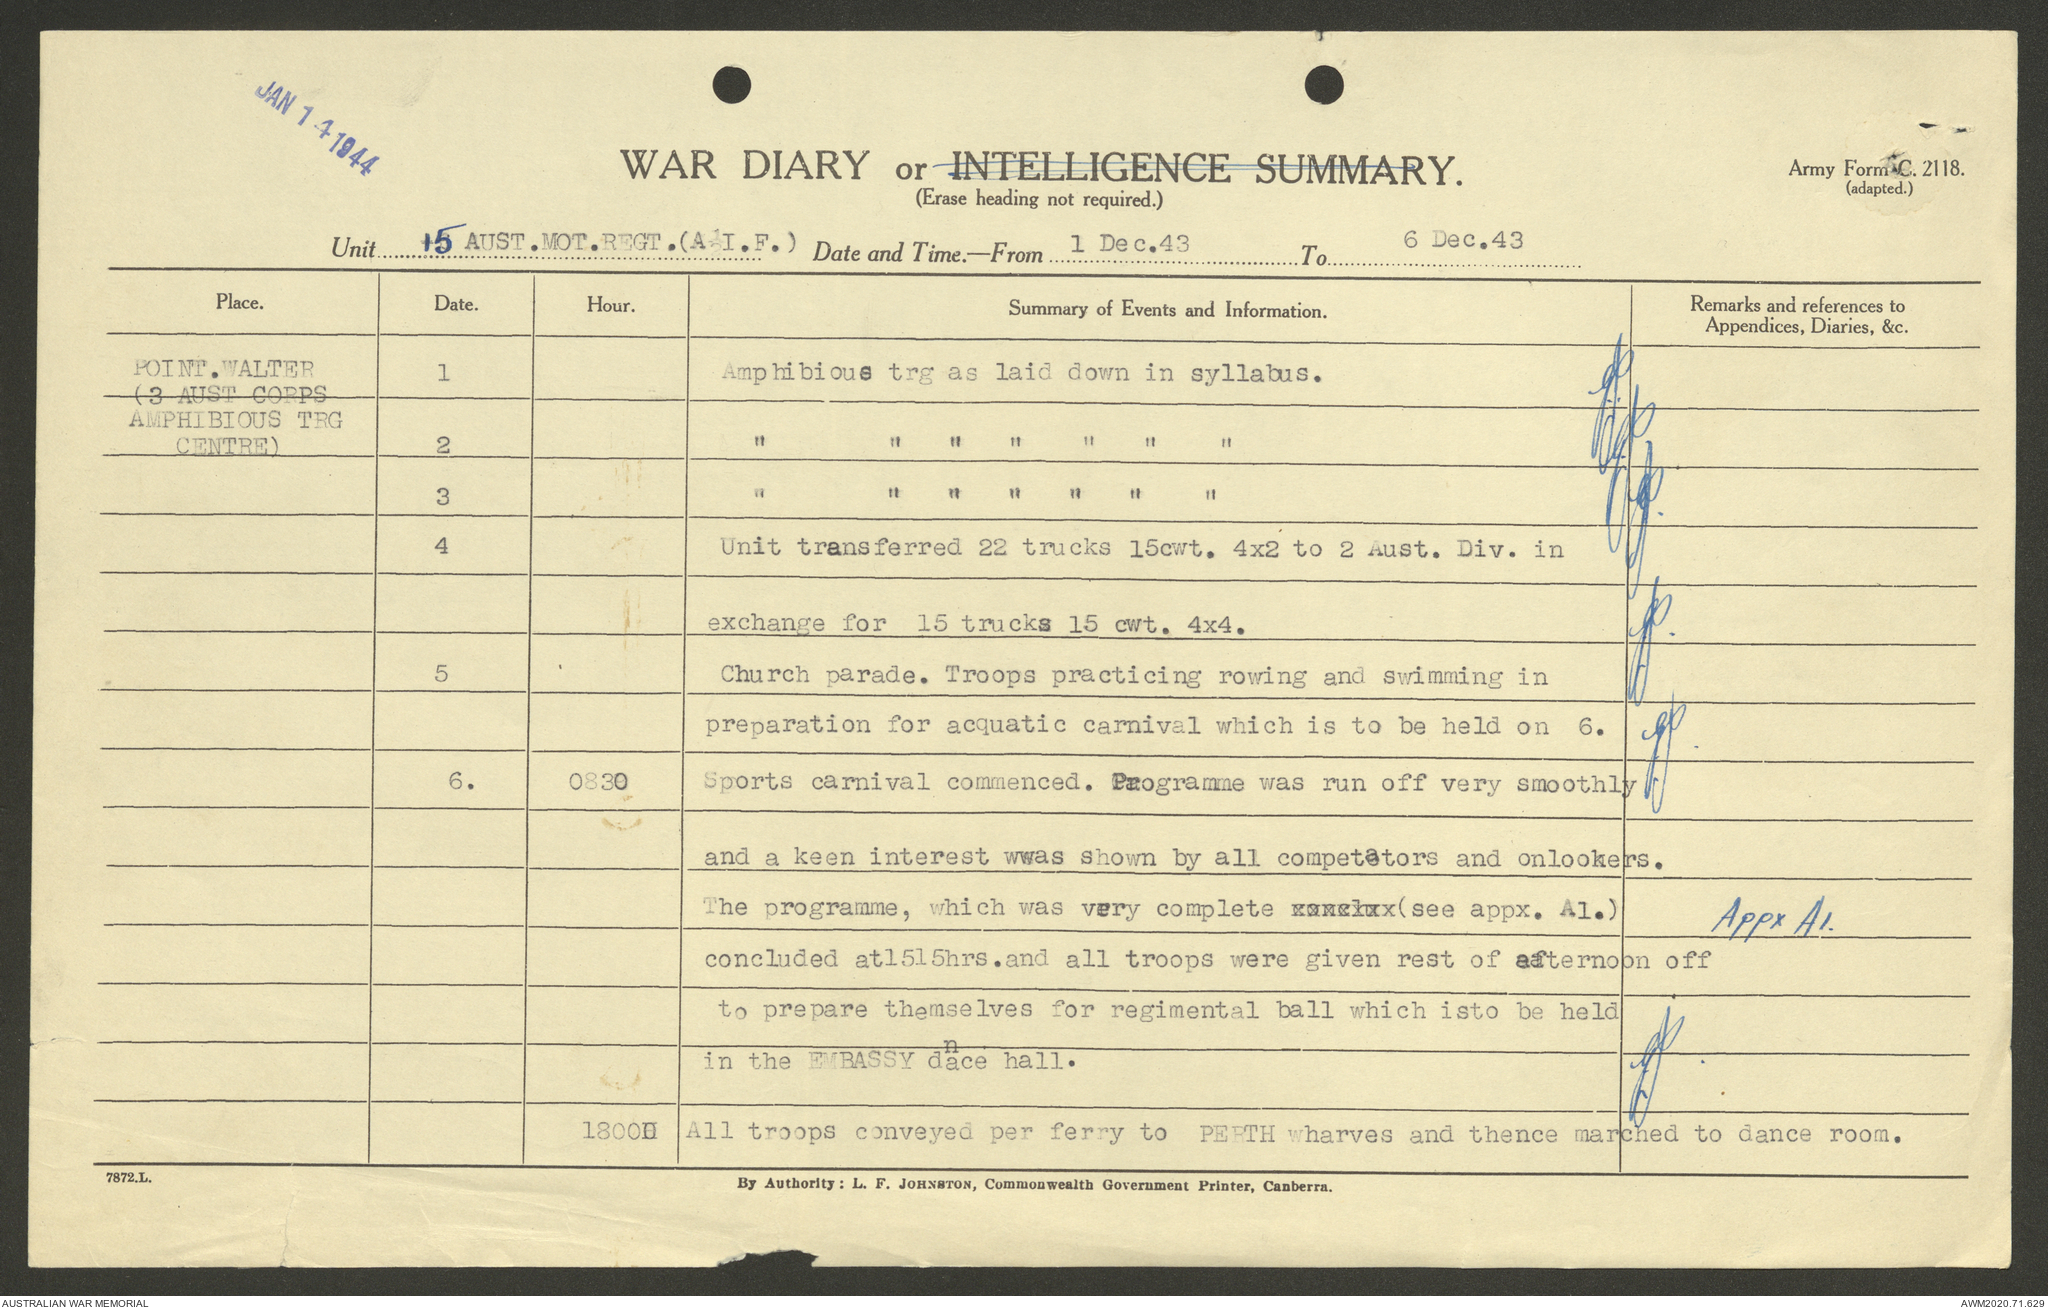 JAN 14 1944
WAR DIARY or INTELLIGENCE SUMMARY.
(Erase heading not required.)
Army Form C. 2118.
(adapted.)
Unit 15 AUST.MOT.REGT.(A.I.F.) Date and Time.—From 1 Dec.43 To 6 Dec.43
Place. Date. Hour. Summary of Events and Information. Remarks and references to Appendices, Diaries, &c.
POINT.WALTER 1 Amphibious trg as laid down in syllabus.
(3 AUST CORPS
AMPHIBIOUS TRG
CENTRE) 2 " " " " " " "
3 " " " " " " "
4 Unit transferred 22 trucks 15cwt. 4x2 to 2 Aust. Div. in
exchange for 15 trucks 15 cwt. 4x4.
5 Church parade. Troops practicing rowing and swimming in
preparation for acquatic carnival which is to be held on 6.
6. 0830 Sports carnival commenced. Programme was run off very smoothly
and a keen interest wwas shown by all competators and onlookers.
The programme, which was very complete (see appx. A1.) Appx A1.
concluded at1515hrs.and all troops were given rest of afternoon off
to prepare themselves for regimental ball which isto be held
in the EMBASSY dance hall.
1800H All troops conveyed per ferry to PERTH wharves and thence marched to dance room.
7872.L.
By Authority: L. F. JOHNSTON, Commonwealth Government Printer, Canberra.
AUSTRALIAN WAR MEMORIAL
AWM2020.71.629